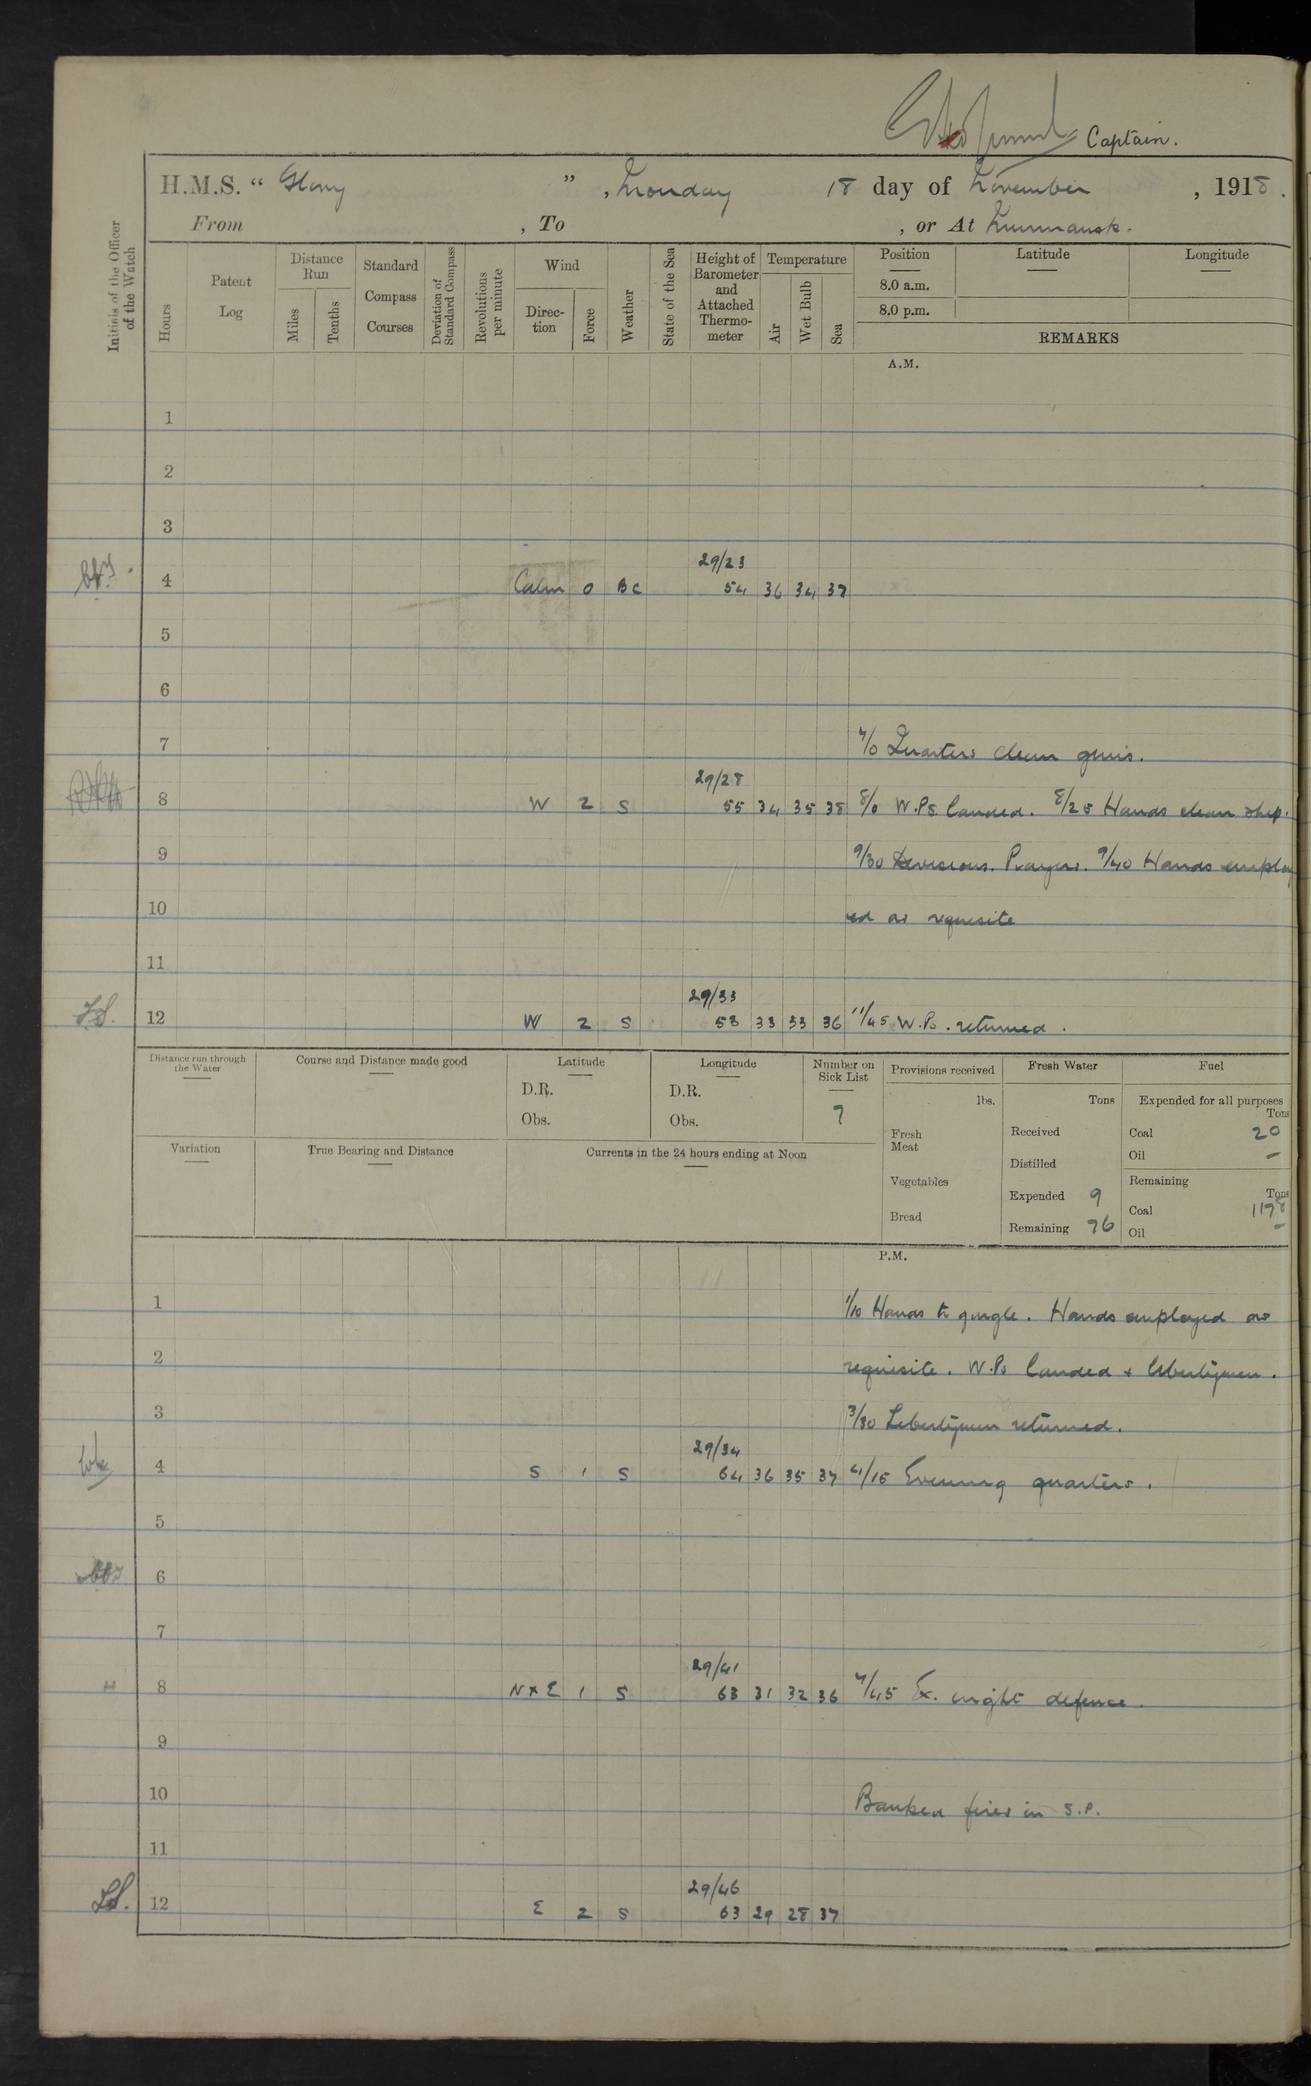 Captain.
H.M.S. “ Glory ” , Monday 18 day of November , 1918.
From , To , or At Murmansk.
Initials of the Officer of the Watch
Hours
Patent Log
Distance Run
Miles
Tenths
Standard Compass Courses
Deviation of Standard Compass
Revolutions per minute
Wind
Direc-tion
Force
Weather
State of the Sea
Height of Barometer and Attached Thermo-meter
Temperature
Air
Wet Bulb
Sea
Position
Latitude
Longitude
8.0 a.m.
8.0 p.m.
REMARKS
A.M.
1
2
3
29/23
4 Calm 0 BC 54 36 34 37
5
6
7 7/0 Quarters clean guns.
29/28
8 W 2 S 55 34 35 38 8/0 W.Ps. landed. 8/25 Hands clean ship.
9 9/30 Divisions. Prayers. 9/40 Hands employ
10 ed as requisite
11
29/33
12 W 2 S 58 33 33 36 11/45 W.Ps. returned.
Distance run through the Water
Course and Distance made good
Latitude
D.R.
Obs.
Longitude
D.R.
Obs.
Number on Sick List
7
Variation
True Bearing and Distance
Currents in the 24 hours ending at Noon
Provisions received
lbs.
Fresh Meat
Vegetables
Bread
Fresh Water
Tons
Received
Distilled
Expended 9
Remaining 76
Fuel
Expended for all purposes
Tons
Coal 20
Oil –
Remaining
Tons
Coal 1178
Oil –
P.M.
1 1/10 Hands to gargle. Hands employed as
2 requisite. W.Ps landed & libertymen.
3 3/30 Libertymen returned.
29/34
4 S 1 S 64 36 35 37 4/15 Evening quarters.
5
6
7
29/41
8 N x E 1 S 63 31 32 36 7/45 Ex. night defence.
9
10 Banked fires in S.P.
11
29/46
12 E 2 S 63 29 28 37